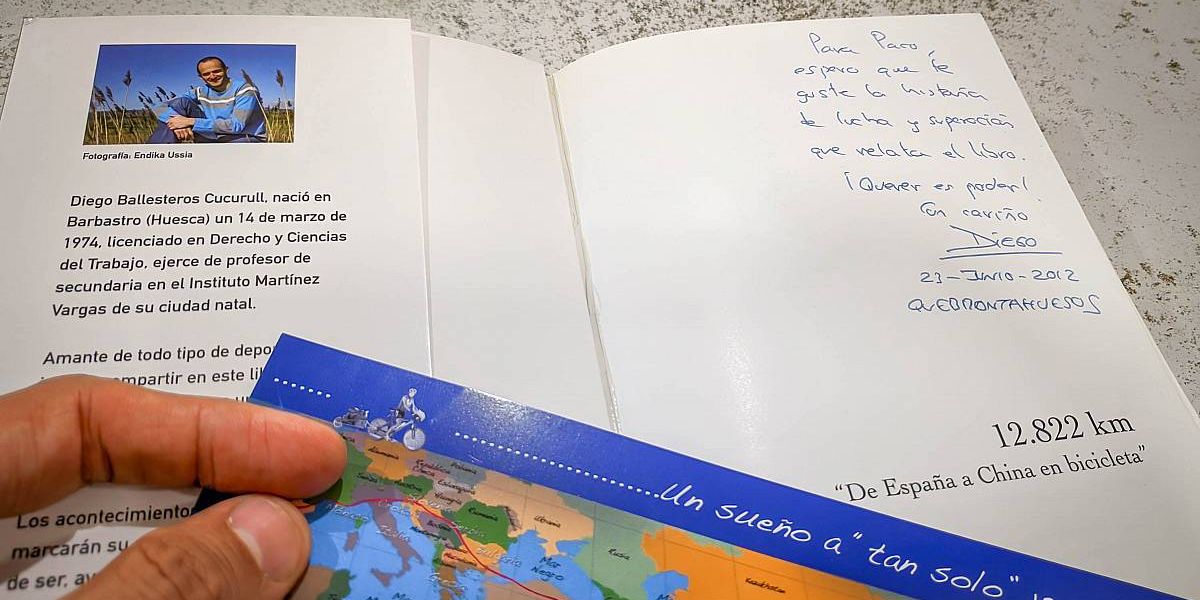 Fotografía: Endika Ussia
Diego Ballesteros Cucurull, nació en
Barbastro (Huesca) un 14 de marzo de
1974, licenciado en Derecho y Ciencias
del Trabajo, ejerce de profesor de
secundaria en el Instituto Martínez
Vargas de su ciudad natal.
Amante de todo tipo de depo
compartir en este li
Los acontecimiento
marcarán su
de ser, av
Para Paco,
espero que te
guste la historia
de lucha y superación
que relata el libro.
¡Querer es poder!
Con cariño
DIEGO
23-JUNIO-2012
QUEBRANTAHUESOS
12.822 km
"De España a China en bicicleta"
Un sueño a "tan solo"
Alemania
República
Checa
Polonia
Hungría
Ucrania
Rusia
Kazakhstan
Italia
Serbia
Bulgaria
Mar
Negro